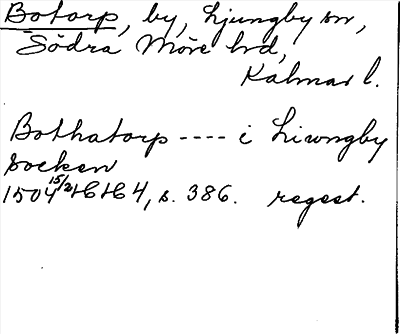 Botorp, by, Ljungby sn,
Södra Möre hd,
Kalmar l.
Bothatorp ---- i Liwngby
socken
1504 15/2 HH 4, s. 386. regest.